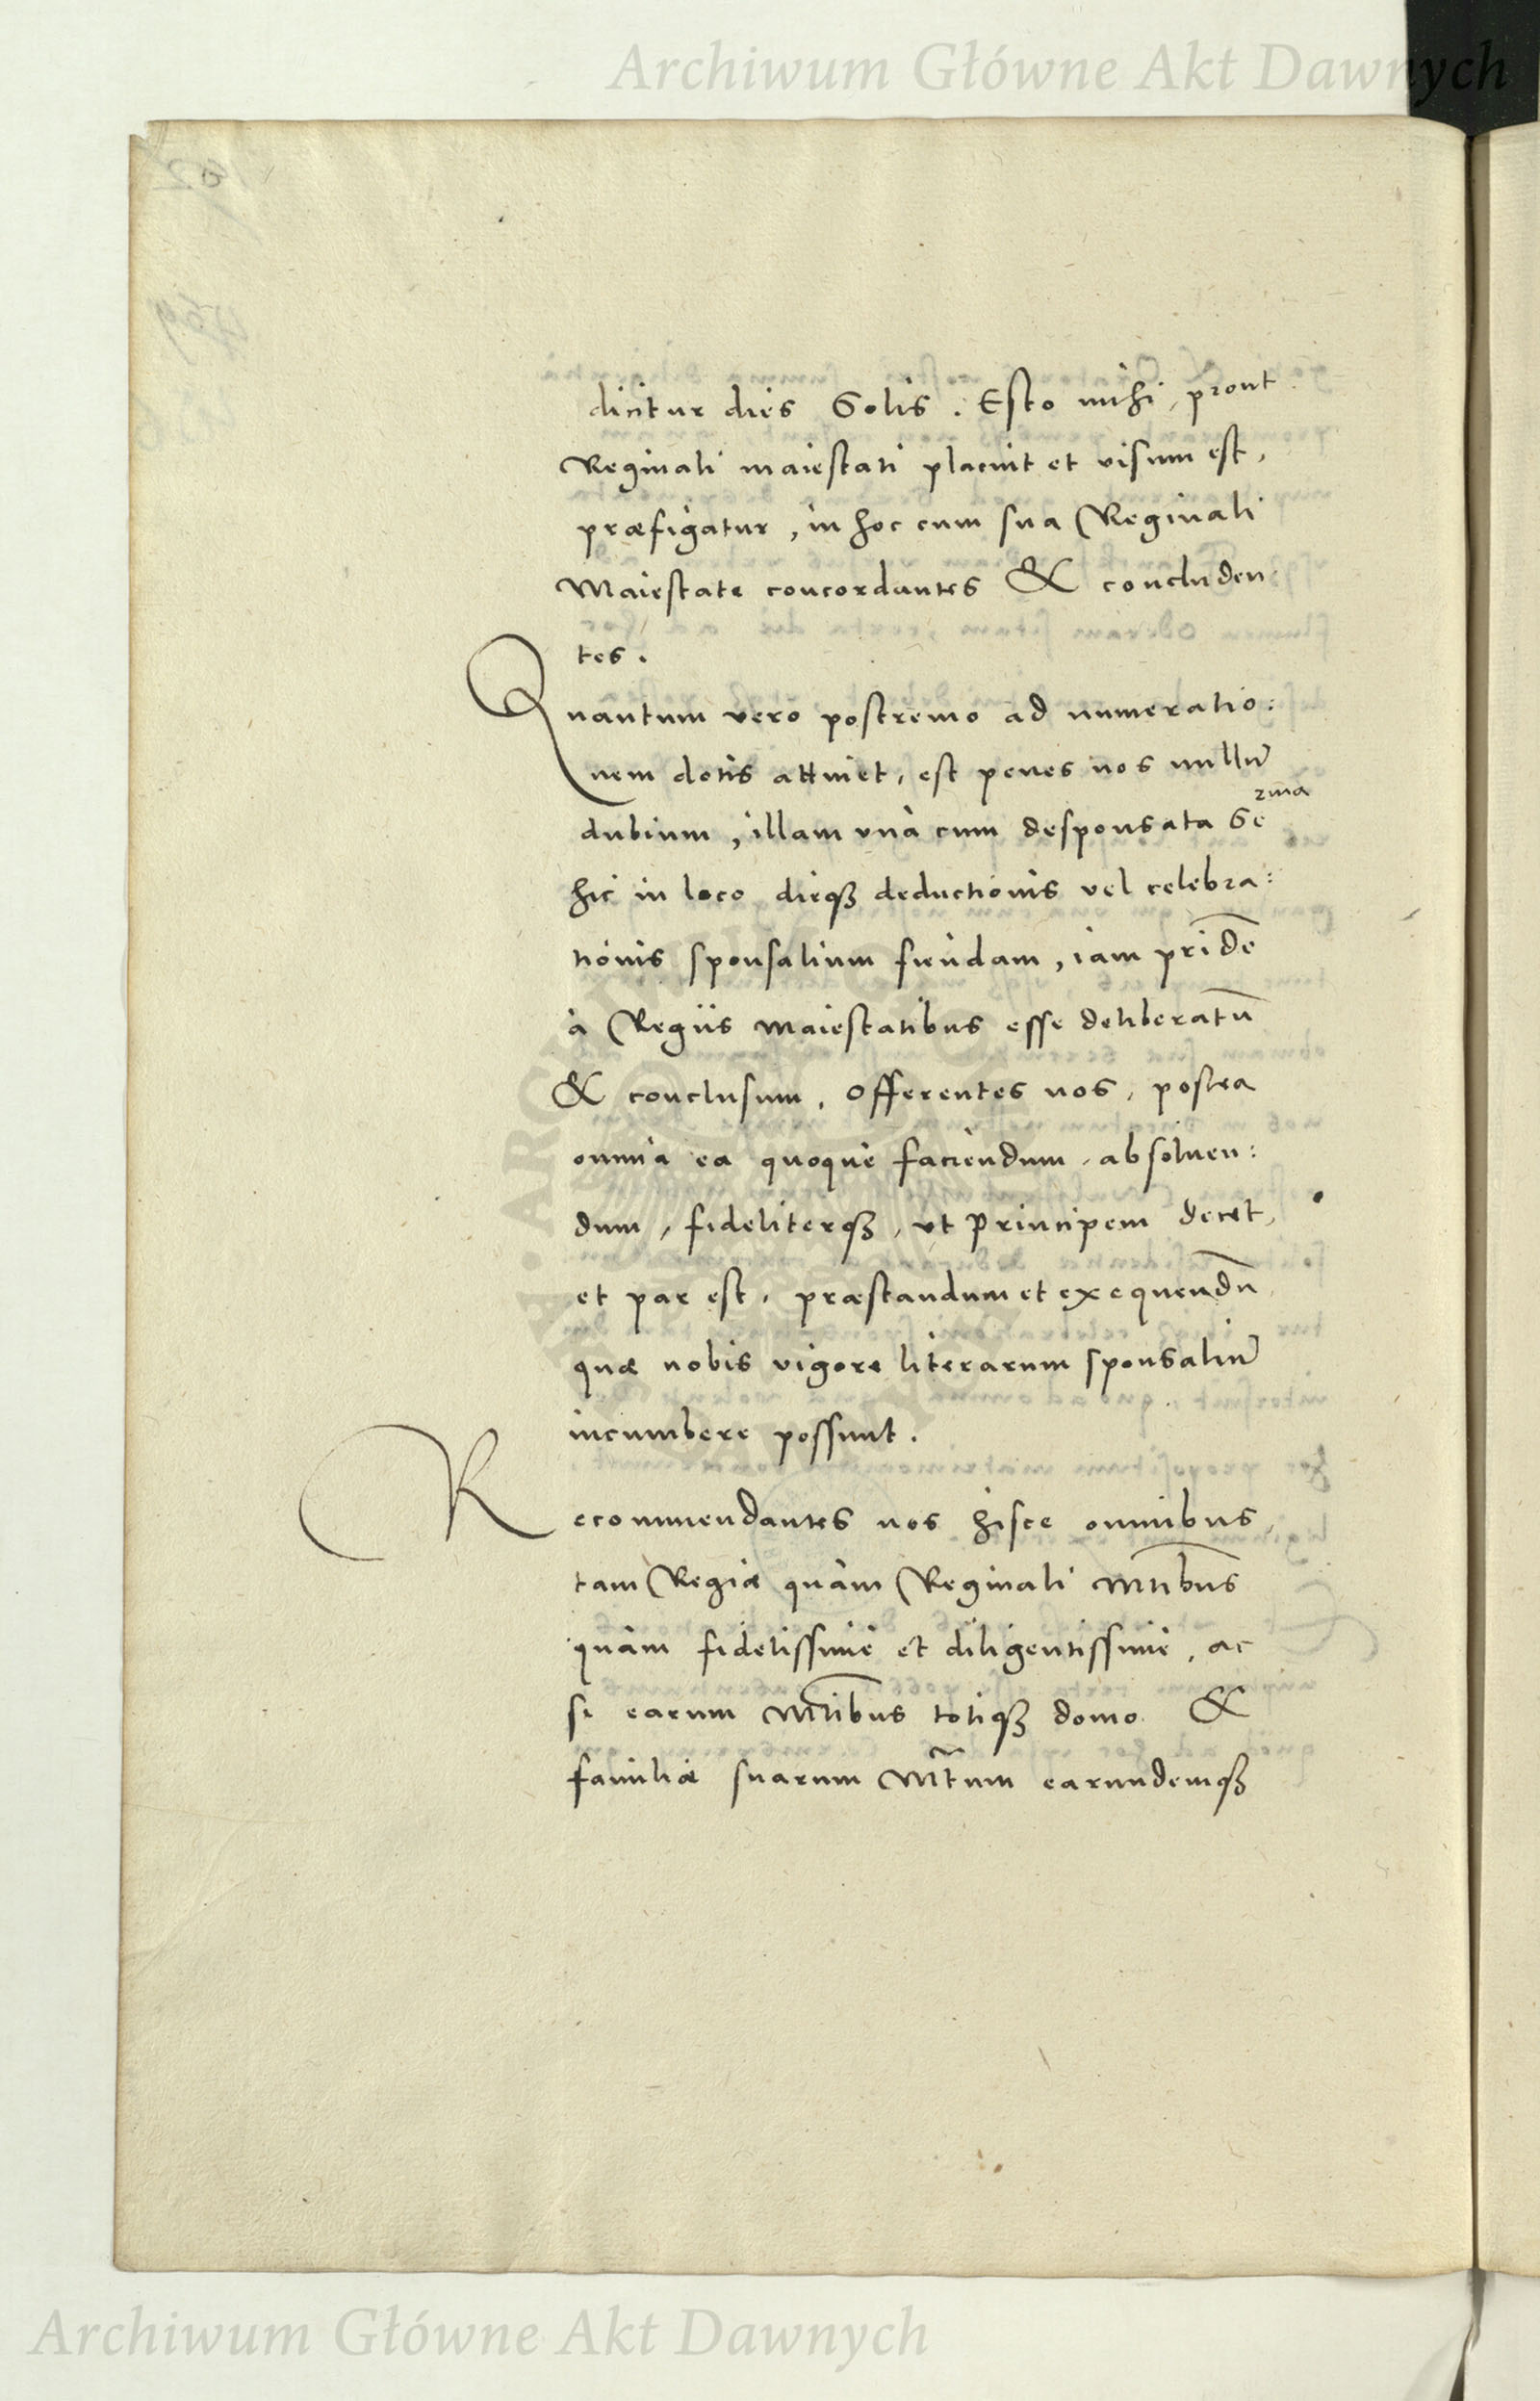 Archiwum Główne Akt Dawnych
dicitur dies Solis . Esto mihi, prout
Reginali maiestati placuit et visum est,
præfigatur, in hoc cum sua Reginali
Maiestate concordantes & concluden:
tes.
Quantum vero postremo ad numeratio:
nem dotis attinet, est penes nos nullũ
dubium, illam vnà cum desponsata Se^rma
hic in loco dieqȝ deductionis vel celebra:
tionis sponsalium fiendam, iam pridẽ
à Regiis Maiestatibus esse deliberatũ
& conclusum, Offerentes nos, postea
omnia ea quoque faciendum, absoluen:
dum, fideliterqȝ, vt Principem decet,
et par est, præstandum et exequendũ
quæ nobis vigore literarum sponsaliũ
incumbere possunt.
Recommendantes nos hisce omnibus,
tam Regiæ quàm Reginali Mtibus
quàm fidelissimè et diligentissimè, ac
si earum Mtibus totiqȝ domo &
familiæ suarum Mtum earundemqȝ
Archiwum Główne Akt Dawnych